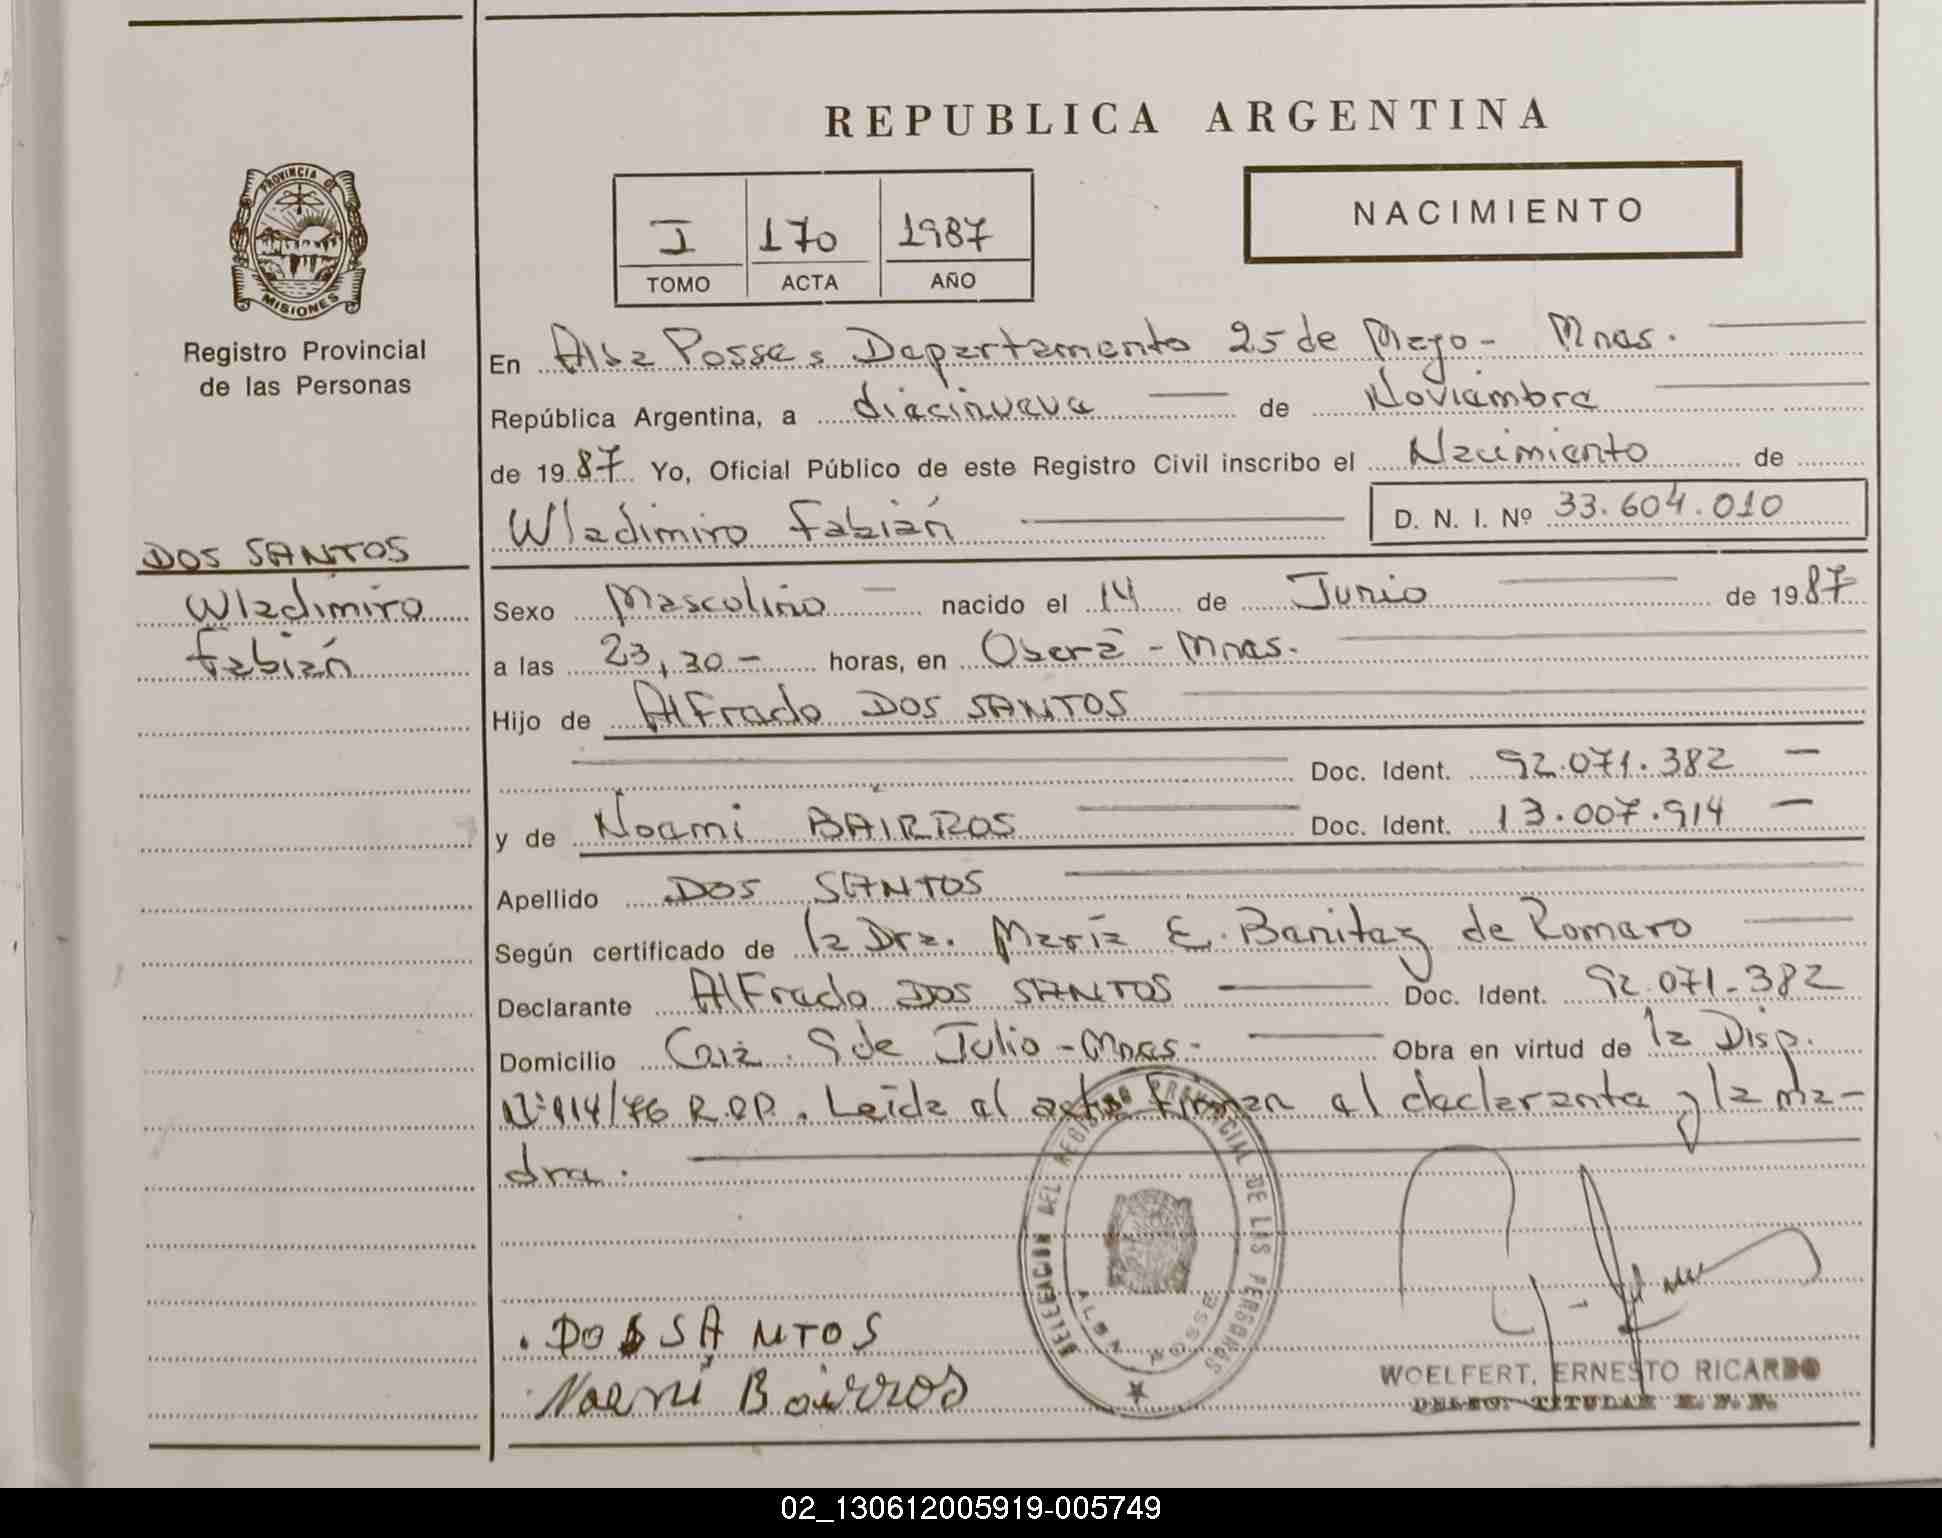 REPUBLICA ARGENTINA
PROVINCIA DE
MISIONES
Registro Provincial
de las Personas
I 170 1987
TOMO ACTA AÑO
NACIMIENTO
En Alba Posse, Departamento 25 de Mayo - Mnes.
República Argentina, a diecinueve de Noviembre
de 1987 Yo, Oficial Público de este Registro Civil inscribo el Nacimiento de
Wladimiro Fabián D. N. I. Nº 33.604.010
DOS SANTOS
Wladimiro
Fabián
Sexo Masculino nacido el 14 de Junio de 1987
a las 23,30 - horas, en Oberá - Mnes.
Hijo de Alfredo DOS SANTOS
Doc. Ident. 92.071.382 -
y de Noemi BAIRROS Doc. Ident. 13.007.914 -
Apellido DOS SANTOS
Según certificado de la Dra. María E. Benitez de Romero
Declarante Alfredo DOS SANTOS Doc. Ident. 92.071.382
Domicilio 9 de Julio - Mnes. Obra en virtud de la Disp.
Nº 114/76 R.P.P. Leída el acta Firman el declarante y la ma-
dre.
DELEGACION DEL REGISTRO PROVINCIAL DE LAS PERSONAS
ALBA POSSE
DOS SANTOS
Noemi Bairros
WOELFERT, ERNESTO RICARDO
TITULAR R. P. P.
02_130612005919-005749